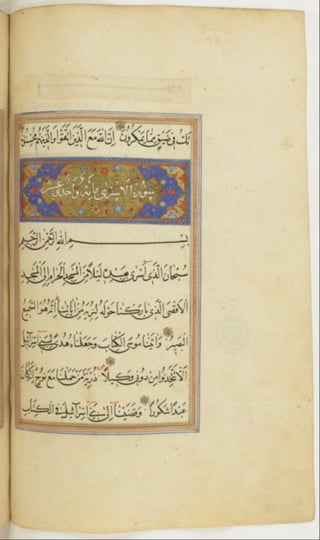 تك في ضيق مما يمكرون ان الله مع الذين اتقوا والذين هم محسنون
سورة الاسرى مائة واحد وعشر
بسم الله الرحمن الرحيم
سبحان الذي اسرى بعبده ليلا من المسجد الحرام الى المسجد
الاقصى الذي باركنا حوله لنريه من اياتنا انه هو السميع
البصير واتينا موسى الكتاب وجعلناه هدى لبني اسرائيل
الا تتخذوا من دوني وكيلا ذرية من حملنا مع نوح انه كان
عبدا شكورا وقضينا الى بني اسرائيل في الكتاب